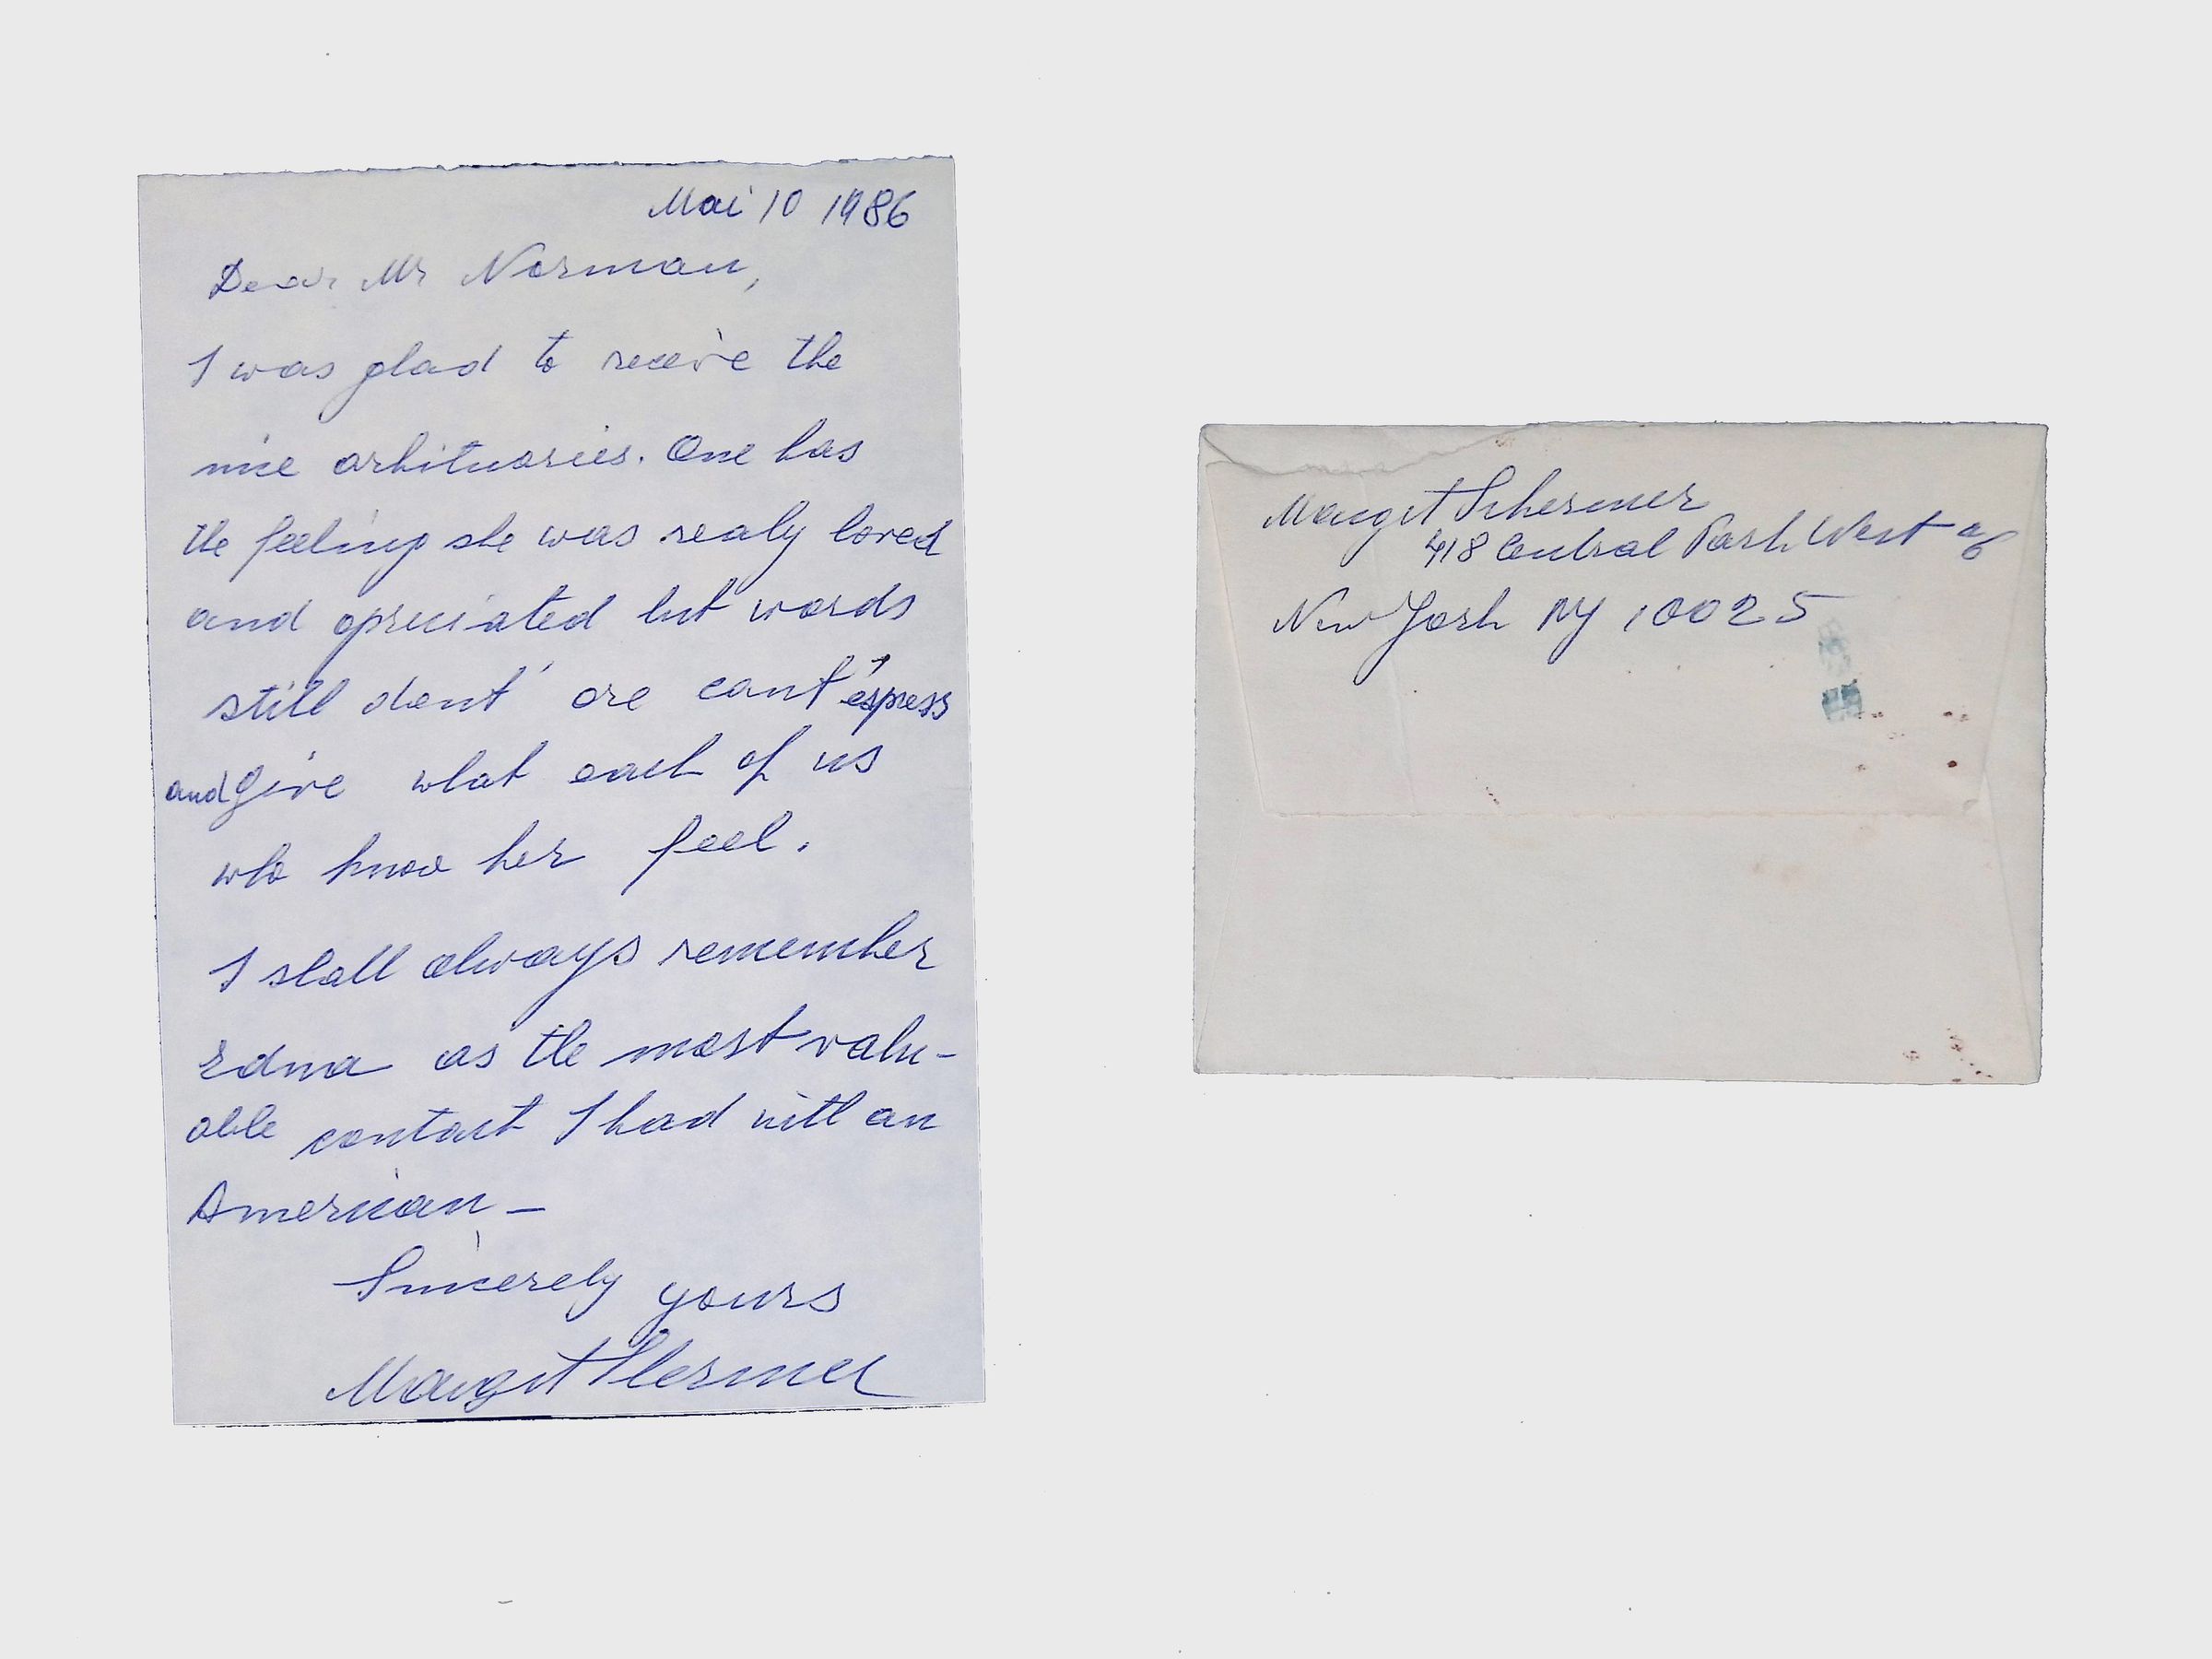 Mai 10 1986
Dear Mr Norman,
I was glad to receive the
nice orbituaries. One has
the feeling she was realy loved
and apreciated but words
still dont' ore cant' espress
and give what each of us
who know her feel.
I shall always remember
Edna as the most valu-
able contact I had with an
American –
Sincerely yours
Margit Shermer
Margit Schermer
418 Central Park West
New York NY 10025